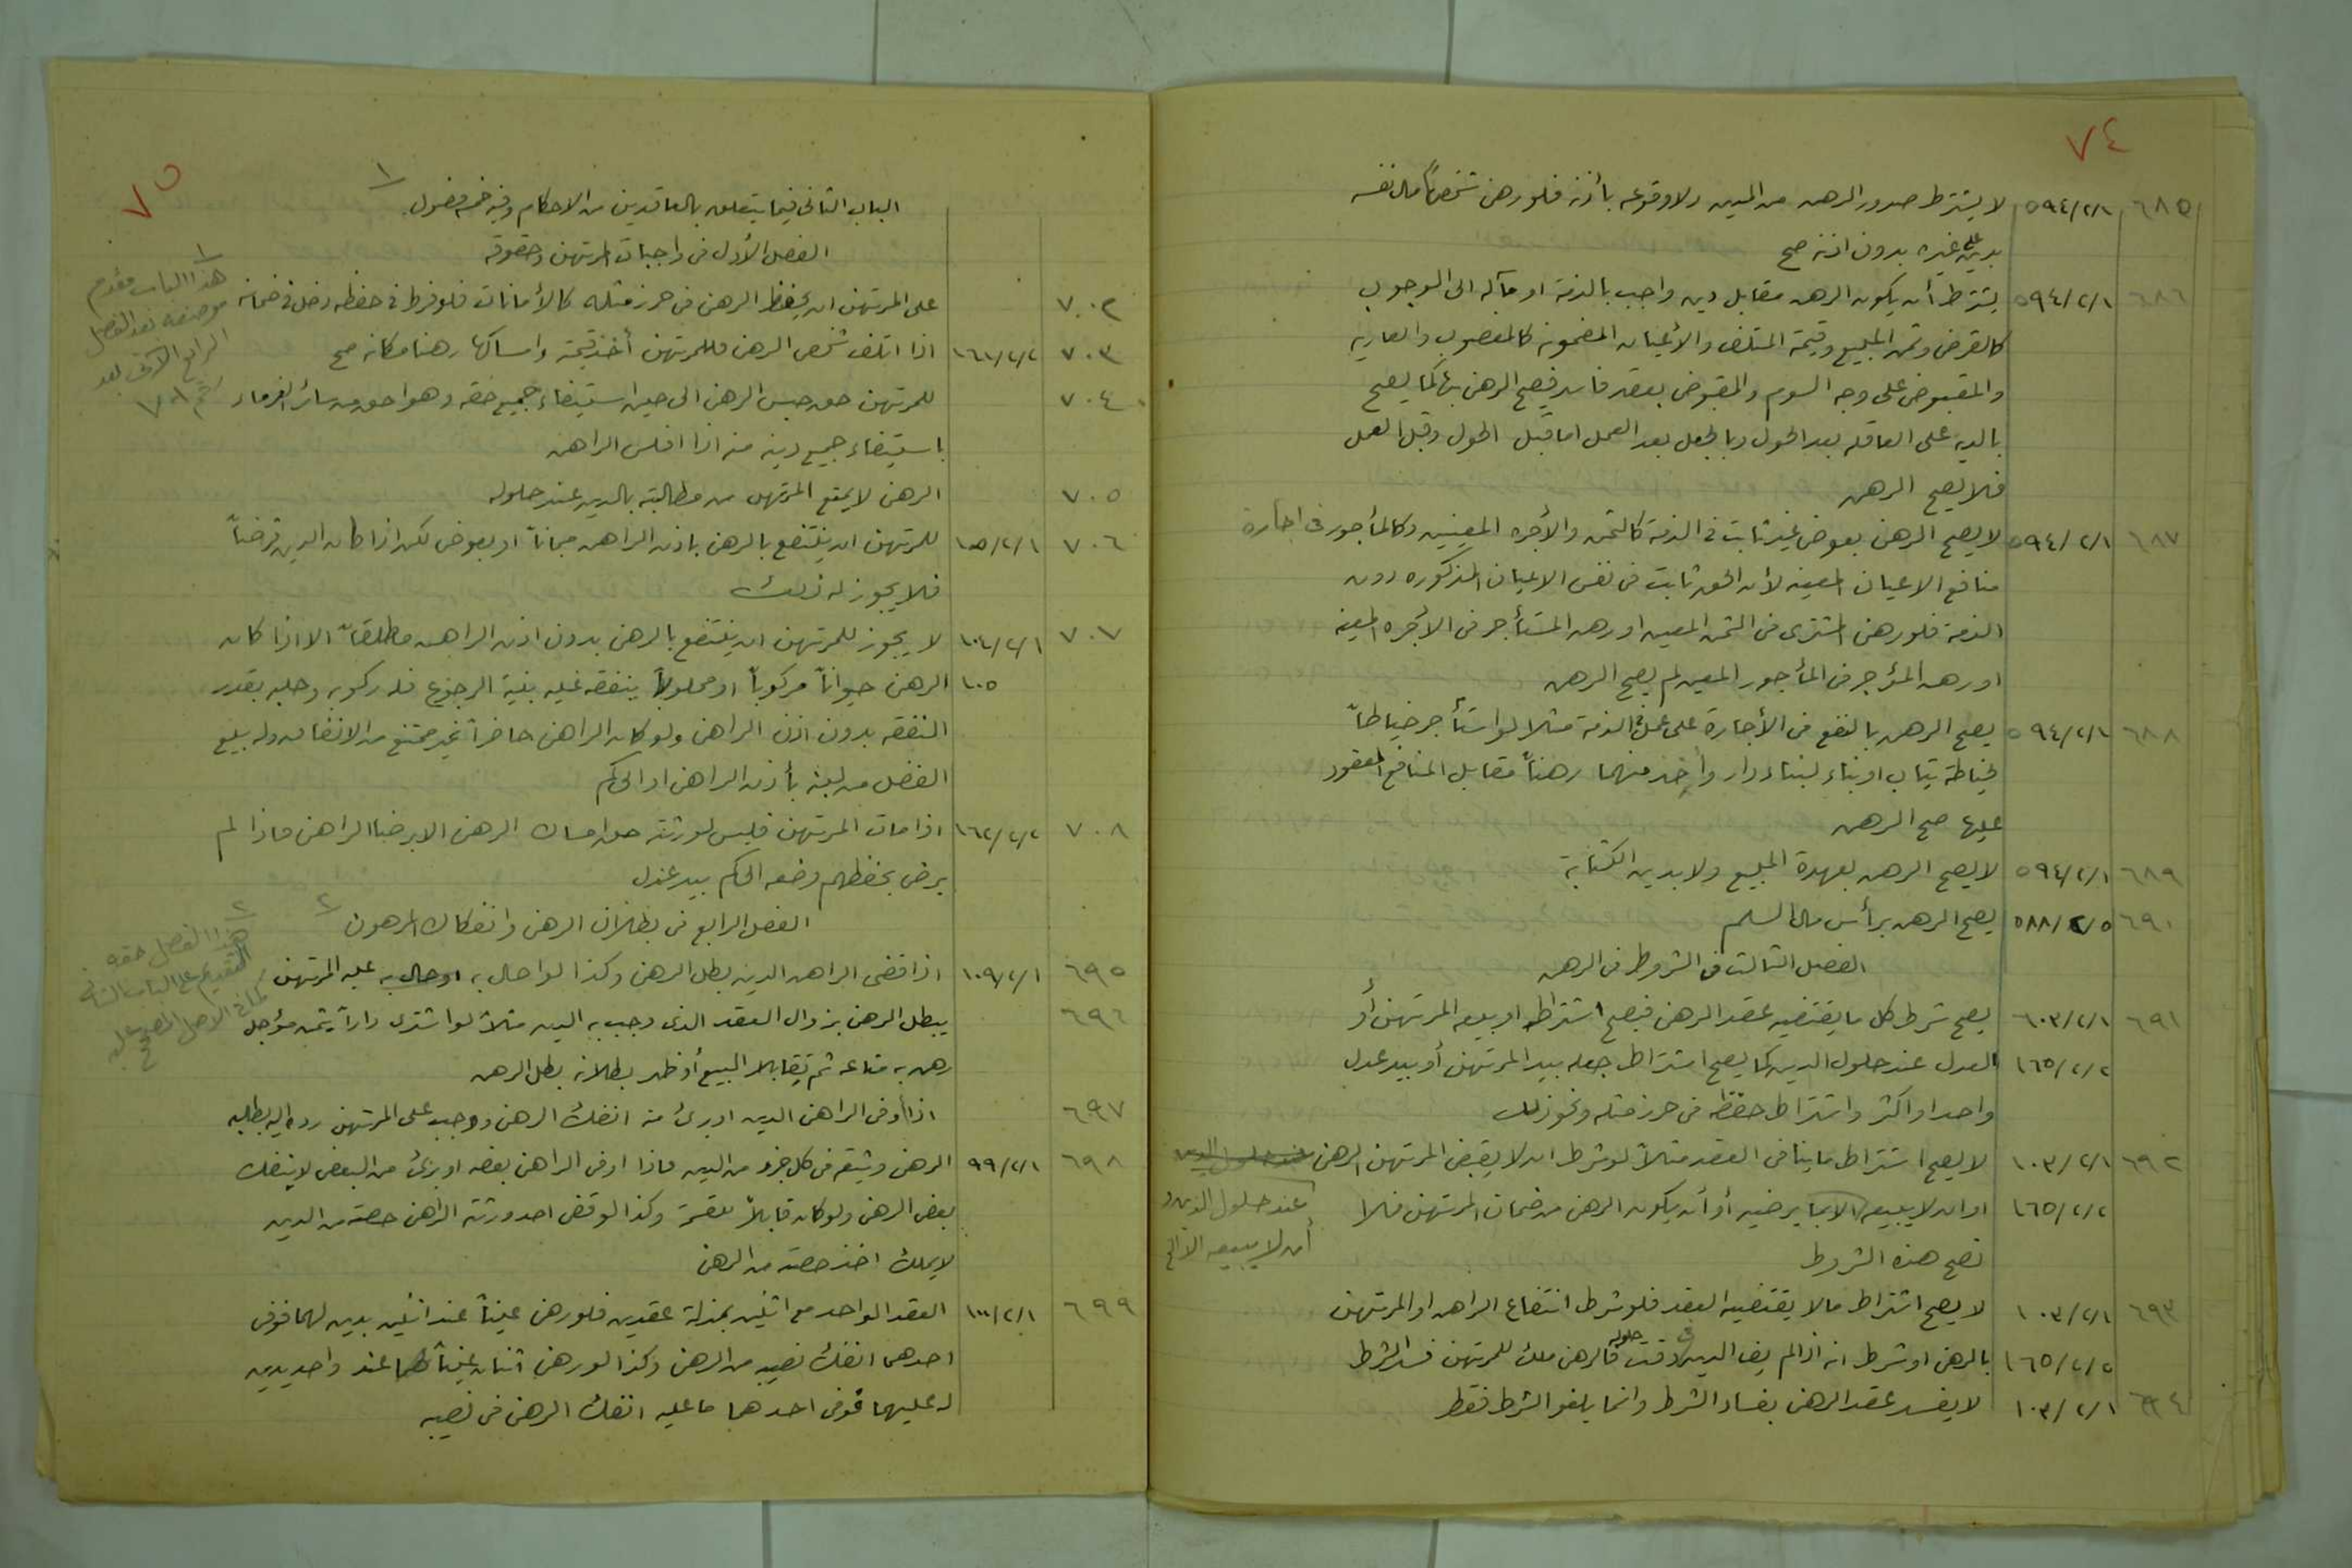 ٧٤
٦٨٥ ٥٩٤/٢/١ لا يشترط صدور الرهن من المدين ولا وقوعه بأذنه فلو رهن شخص مال نفسه
بدين على غيره بدون اذنه صح
٦٨٦ ٥٩٤/٢/١ يشترط أن يكون الرهن مقابل دين واجب بالذمة او مآله الى الوجوب
كالقرض وثمن المبيع وقيمة المتلف والأعيان المضمونه كالمغصوب والعاريه
والمقبوض على وجه السوم والمقبوض بعقد فاسد فيصح الرهن بها كما يصح
بالديه على العاقله بعد الحول وبالجعل بعد العمل اما قبل الحول وقبل العمل
فلا يصح الرهن
٦٨٧ ٥٩٤/٢/١ لا يصح الرهن بعوض غير ثابت في الذمة كالثمن والأجره المعينين وكالمأجور في اجارة
منافع الاعيان المعينه لأن الحق ثابت في نفس الاعيان المذكوره دون
الذمة فلو رهن المشترى في الثمن المعين او رهن المستأجر في الأجره المعينه
او رهن المؤجر في المأجور المعين لم يصح الرهن
٦٨٨ ٥٩٤/٢/١ يصح الرهن بالنفع في الأجارة على عمل في الذمة مثلا لو استأجر خياطاً
لخياطة ثياب او بناء لبناء دار وأخذ منهما رهناً مقابل المنافع المعقود
عليها صح الرهن
٦٨٩ ٥٩٤/٢/١ لا يصح الرهن بعهدة المبيع ولا بدين الكتابة
٦٩٠ ٥٨٨/٢/٥ يصح الرهن برأس مال السلم
الفصل الثالث في الشروط في الرهن
٦٩١ ٦٠٣/٢/١ يصح شرط كل ما يقتضيه عقد الرهن فيصح اشتراط او بيعه المرتهن أو
١٦٥/٢/٢ العدل عند حلول الدين كما يصح اشتراط جعله بيد المرتهن أو بيد عدل
واحد او اكثر واشتراط حفظه في حرز مثله ونحو ذلك
٦٩٢ ١٠٣/٢/١ لا يصح اشتراط ما ينافى العقد مثلاً لو شرط ان لا يقبض المرتهن الرهن عند حلول الدين
١٦٥/٢/٢ او ان لا يبيعه الا بما يرضيه أو أن يكون الرهن من ضمان المرتهن فلا
عند حلول الدين و
أن لا يبيعه الا الخ
تصح هذه الشروط
٦٩٣ ١٠٣/٢/١ لا يصح اشتراط ما لا يقتضيه العقد فلو شرط انتفاع الراهن او المرتهن
١٦٥/٢/٢ بالرهن او شرط انه اذا لم يف الدين فى وقت حلوله فالرهن ملك للمرتهن فسد الشرط
٦٩٤ ١٠٣/٢/١ لا يفسد عقد الرهن بفساد الشرط وانما يلغو الشرط فقط
٧٥
الباب الثاني فيما يتعلق بالعاقدين من الاحكام وفيه خمس فصول ١
الفصل الأول في واجبات المرتهن وحقوقه
٧٠٢ على المرتهن ان يحفظ الرهن في حرز مثله كالأمانات فلو فرط في حفظه دخل في ضمانه
١
هذا الباب مقدم
موضعه بعد الفصل
الرابع الآتى بعد
٧٠٣ ١٦١/٢/٢ اذا اتلف شخص الرهن فللمرتهن أخذ قيمته وامساكها رهنا مكانه صح
٧٠٤ للمرتهن حق حبس الرهن الى حين استيفاء جميع حقه وهو احق من سائر الغرماء
باستيفاء جميع دينه منه اذا افلس الراهن
٧٠٥ الرهن لا يمنع المرتهن من مطالبته بالدين عند حلوله
٧٠٦ ١٠٥/٢/١ للمرتهن ان ينتفع بالرهن باذن الراهن مجاناً او بعوض لكن اذا كان الدين قرضاً
فلا يجوز له ذلك
٧٠٧ ١٠٤/٢/١ لا يجوز للمرتهن ان ينتفع بالرهن بدون اذن الراهن مطلقاً الا اذا كان
١٠٥ الرهن حيواناً مركوباً او محلوباً ينفقه عليه بنية الرجوع فله ركوبه وحلبه بقدر
النفقه بدون اذن الراهن ولو كان الراهن حاضراً غير ممتنع من الانفاق وله بيع
الفضل من لبنه بأذن الراهن او الحاكم
٧٠٨ ١٦٢/٢/٢ اذا مات المرتهن فليس لورثته حق امساك الرهن الا برضا الراهن فاذا لم
يرض بحفظهم وضعه الحاكم بيد عدل
الفصل الرابع في بطلان الرهن وانفكاك المرهون ٢
٢
هذا الفصل حقه
التقديم على الباب الثانى
كما في الاصل
٦٩٥ ١٠٩/٢/١ اذا قضى الراهن الدين بطل الرهن وكذا لو احال به او حال به عليه المرتهن
٦٩٦ يبطل الرهن بزوال العقد الذي وجب به الدين مثلاً لو اشترى داراً بثمن مؤجل
رهن به متاعه ثم تقايلا البيع أو ظهر بطلانه بطل الرهن
٦٩٧ اذا أوفى الراهن الدين او برئ منه انفك الرهن ووجب على المرتهن رده اليه بطلبه
٦٩٨ ٩٩/٢/١ الرهن وثيقه في كل جزء من الدين فاذا اوفى الراهن بعضه او برئ من البعض لا ينفك
بعض الرهن ولو كان قابلاً للقسمة وكذا لو قضى احد ورثة الراهن حصته من الدين
لا يملك اخذ حصته من الرهن
٦٩٩ ١٠٠/٢/١ العقد الواحد مع اثنين بمنزلة عقدين فلو رهن عيناً عند اثنين بدين لهما فوفى
احدهما انفك نصيبه من الرهن وكذا لو رهن اثنان عيناً لهما عند واحد بدين
له عليهما فوفى احدهما ما عليه انفك الرهن في نصيبه